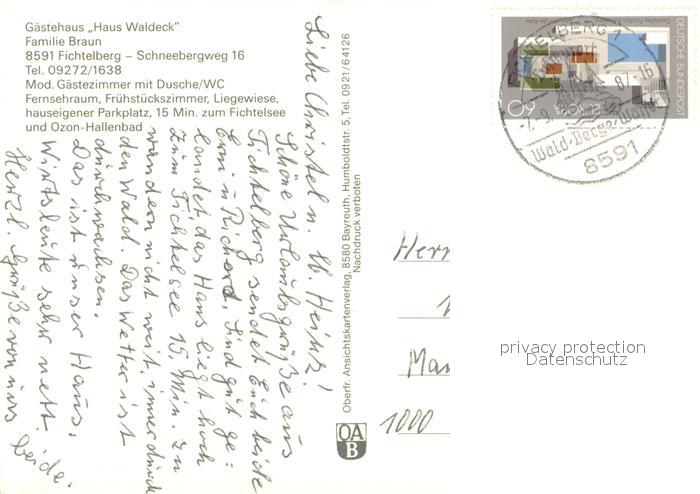 Gästehaus „Haus Waldeck"
Familie Braun
8591 Fichtelberg – Schneebergweg 16
Tel. 09272/1638
Mod. Gästezimmer mit Dusche/WC
Fernsehraum, Frühstückszimmer, Liegewiese,
hauseigener Parkplatz, 15 Min. zum Fichtelsee
und Ozon-Hallenbad
Liebe Christel u. lb. Heinz!
Schöne Urlaubsgrüße aus
Fichtelberg sendet Euch beide
u Richard. Sind gut ge-
landet das Haus liegt hoch
zum Fichtelsee 15 Min. zu
wandern nicht weit, immer durch
den Wald. Das Wetter ist
durchwachsen.
Das ist unser Haus.
Wirtsleute sehr nett.
Herzl. Grüße von uns beide.
Oberfr. Ansichtskartenverlag, 8580 Bayreuth, Humboldtstr. 5, Tel. 0921/64126
Nachdruck verboten
OA
B
DEUTSCHE BUNDESPOST
60
EUROPA
8591
Herr
Mar
1000
privacy protection
Datenschutz